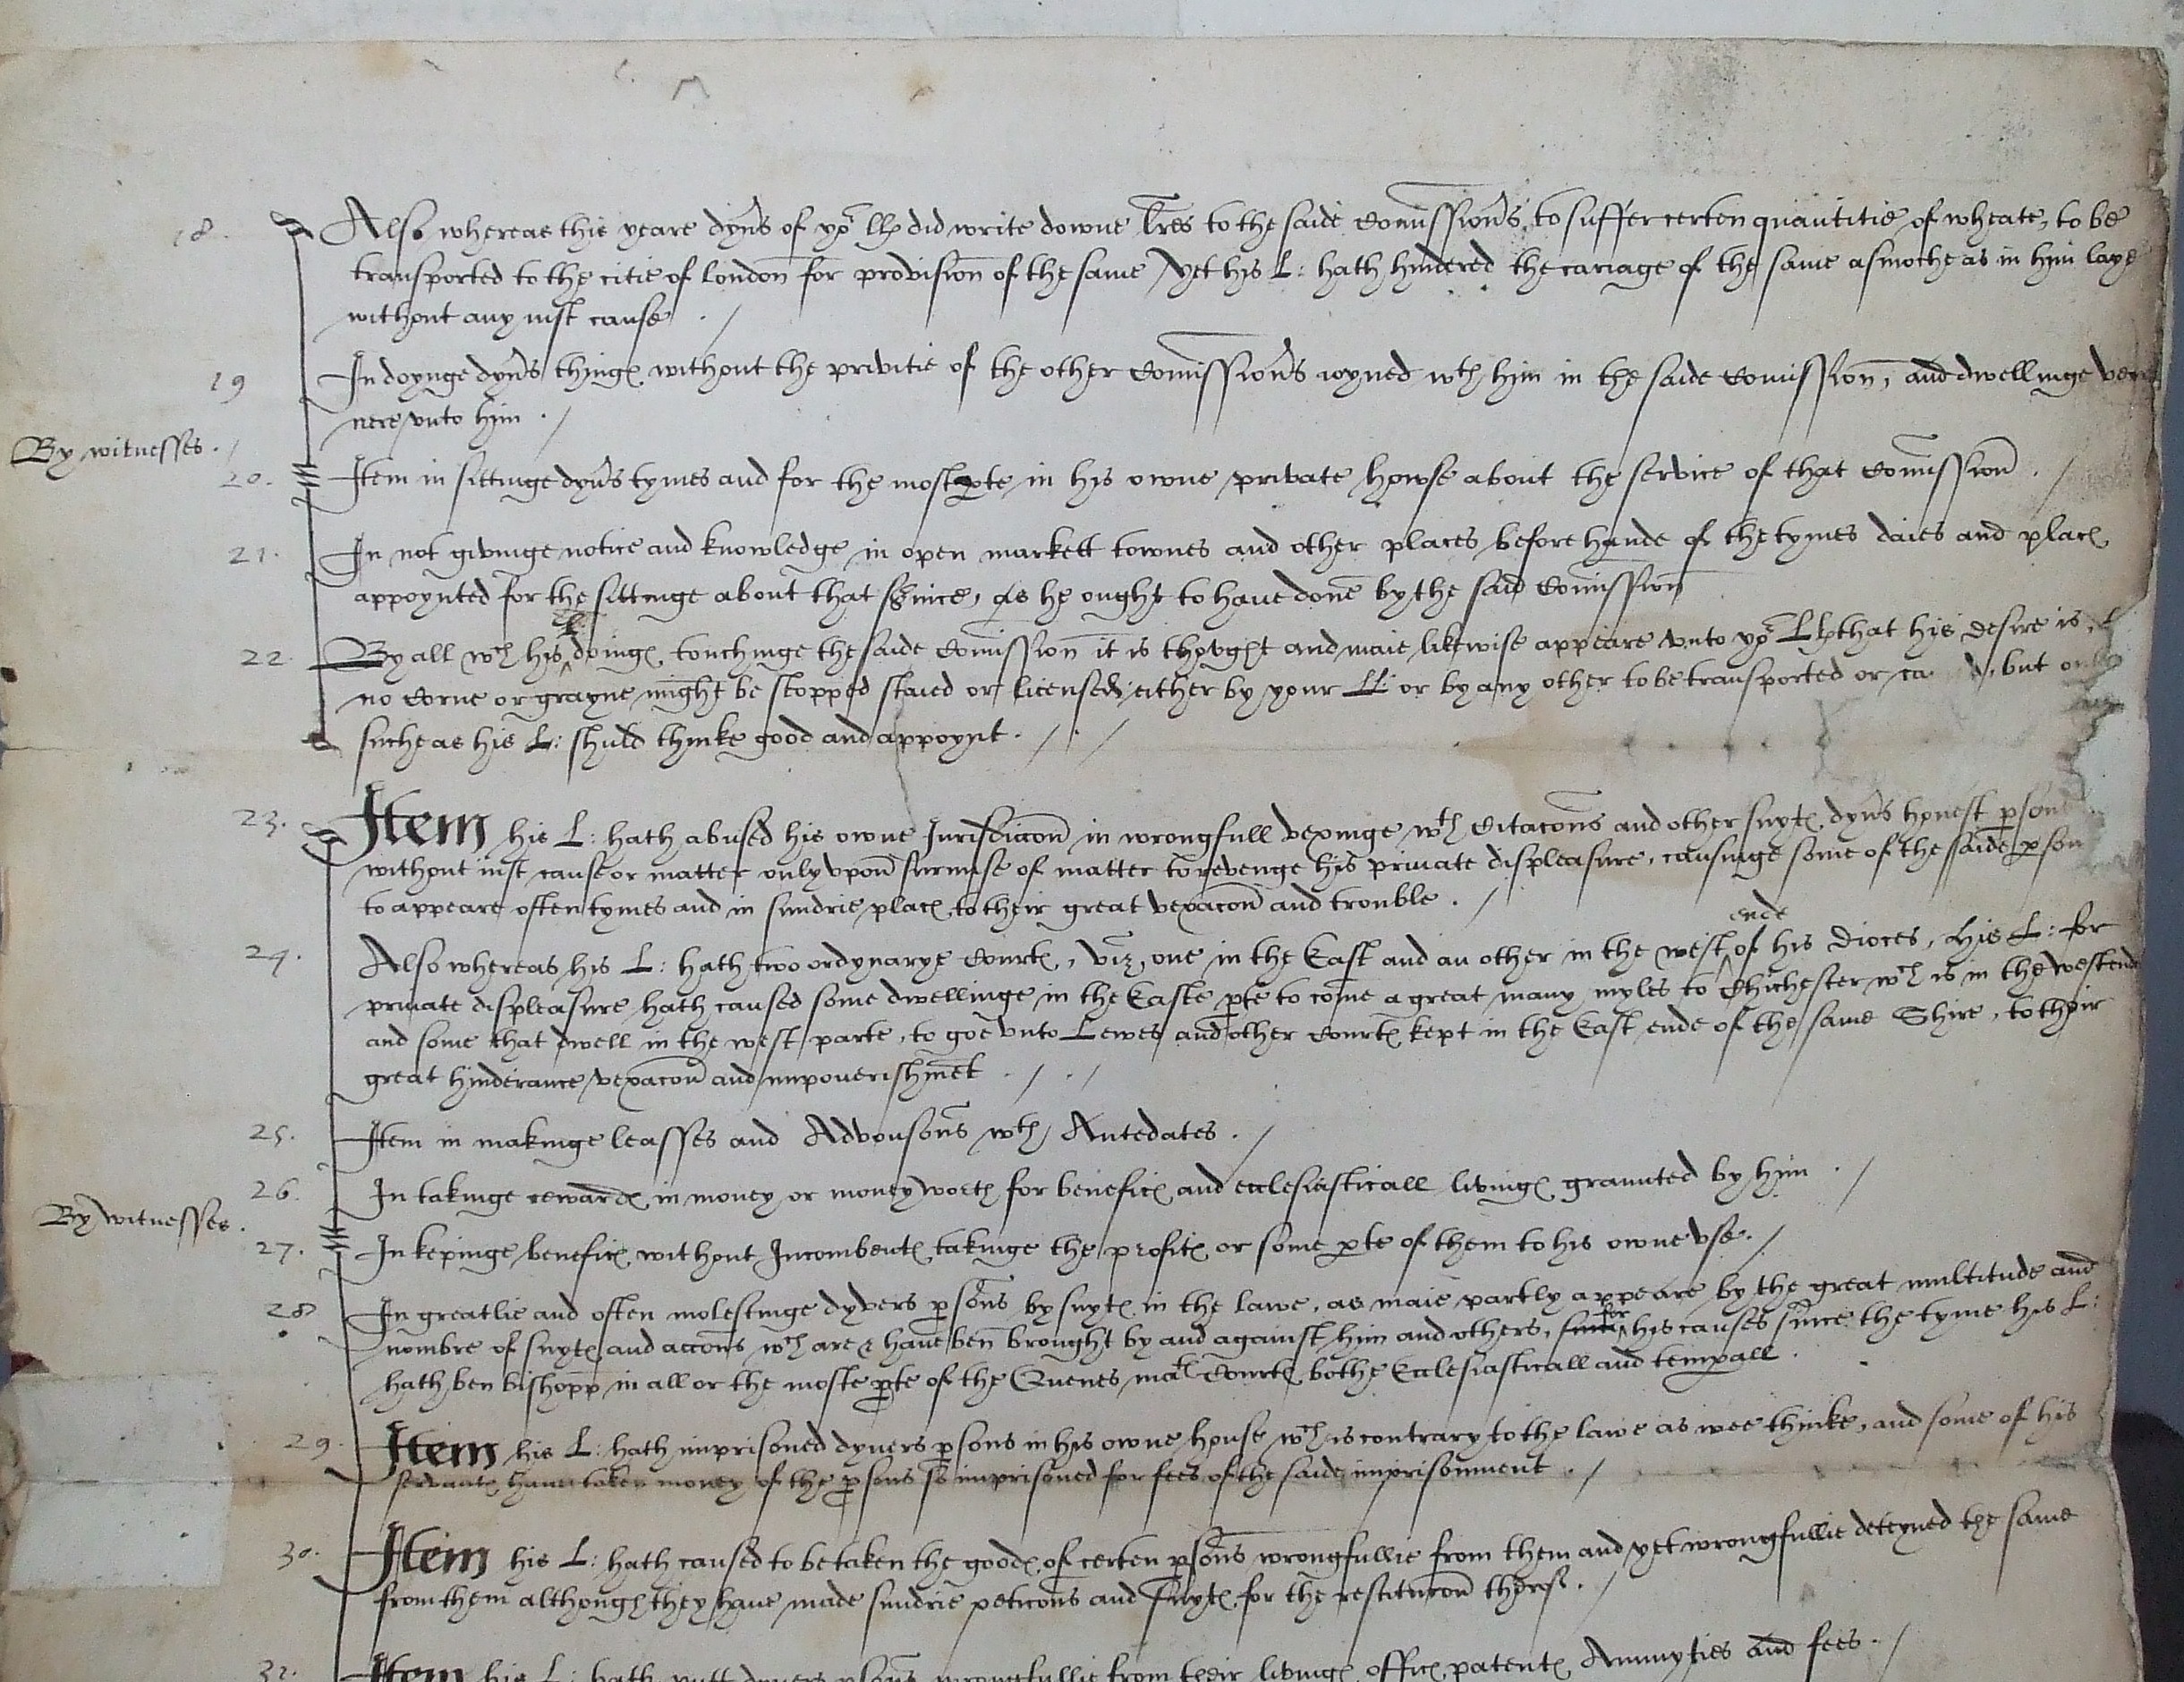 18. Also whereas this yeare dyu's of yor llp did write downe Lres to the saide Comission's, to suffer certen quantitie of wheate, to be
transported to the citie of London for provision of the same / yet his L: hath hindered the cariage of the same asmoche as in him laye
without any iust cause . /
19 In doynge dyu's things without the privitie of the other Comission's ioyned wth him in the saide Comission, and dwellinge very
nere vnto him . /
By witnesses . /
20. Item in sittinge dyu's tymes and for the most pte in his owne private howse about the service of that Comission . /
21. In not givinge notice and knowledge in open markett townes and other places beforehande of the tymes daies and places
appoynted for the sittinge about that s'uice, as he ought to haue done by the said Comission
22. By all wch his doings touchinge the saide Comission it is thovght and maie likewise appeare vnto yor Llp that his desire is,
no Corne or grayne might be stopped staied or licensed either by your LL or by any other to be transported or but only
suche as his L: shuld thinke good and appoynt . / . /
23. Item his L: hath abused his owne Jurisdiccon in wrongfull vexinge wth Citacons and other suytes dyu's honest psons
without iust cause or matter only vpon surmise of matter to revenge his priuate displeasure, causinge some of the saide pson
to appeare often tymes and in sundrie places to their great vexacon and trouble . /
24. Also whereas his L: hath two ordynarye Courtes, viz, one in the East and an other in the west ende of his Dioces, His L: for
priuate displeasure hath caused some dwellinge in the Easte pte to come a great many myles to Chichester wch is in the westende
and some that dwell in the west parte, to goe vnto Lewes and other Courtes kept in the East ende of the same Shire, to their
great hinderance vexacon and impouerishmet . / . /
25. Item in makinge leasses and Advousons wth Antedates . /
26. In takinge rewardes in money or money worth for benefices and ecclesiasticall livings graunted by him . /
By witnesses .
27. In kepinge benefices without Incombents takinge the profites or some pte of them to his owne vse . /
28 In greatlie and often molestinge dyvers psons by suytes in the lawe, as maie partly appeare by the great multitude and
nombre of suytes and accons wch are & haue ben brought by and against him and others, for his causes since the tyme his L:
hath ben bishopp in all or the moste pte of the Quenes mats Courtes bothe Ecclesiasticall and tempall .
29. Item his L: hath imprisoned dyuers psons in his owne house wch is contrary to the lawe as wee thinke, and some of his
servants haue taken money of the psons so imprisoned for fees of the saide imprisonment . /
30. Item his L: hath caused to be taken the goodes of certen psons wrongfullie from them and yet wrongfullie deteyned the same
from them although they haue made sundrie peticons and suytes for the restitucon therof . /
31. Item his L: hath putt dyuers psons wrongfullie from their livings offices patents Annuyties and fees . /